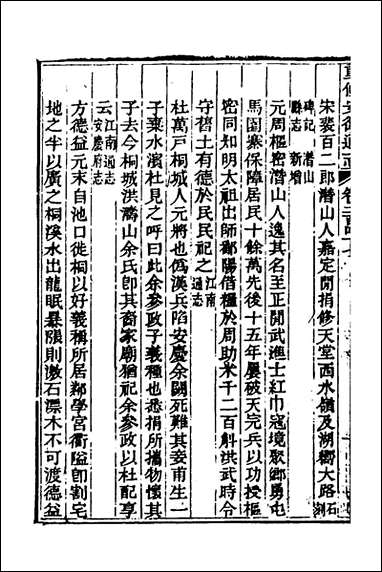 重修安徽通志 卷二百四十
宋裴百二郎潛山人嘉定閒捐修天堂一西水嶺及湖嚮大路石刻
碑記 潛山縣志 新增
元周樞密潛山人逸其名至正閒武進士紅巾寇境聚鄉勇屯
馬園寨保障居民十餘萬先後十五年屢破天完兵以功授樞
密同知明太祖出師鄱陽借糧於周助米千二百斛洪武時令
守舊土有德於民民祀之 江南通志
杜萬戸桐城人元將也偽漢兵陷安慶余闕死難其妾甫生一
子棄水濱杜見之呼曰此余參政子義種也悉捐所攜物懷其
子去今桐城洪濤山余氏卽其裔家廟猶祀余參政以杜配享
云 江南通志 安慶府志
方德益元末自池口徙桐以好義稱所居鄰學宮衢隘卽割宅
地之半以廣之桐溪水出龍眠暴漲則漱石漂木不可渡德益